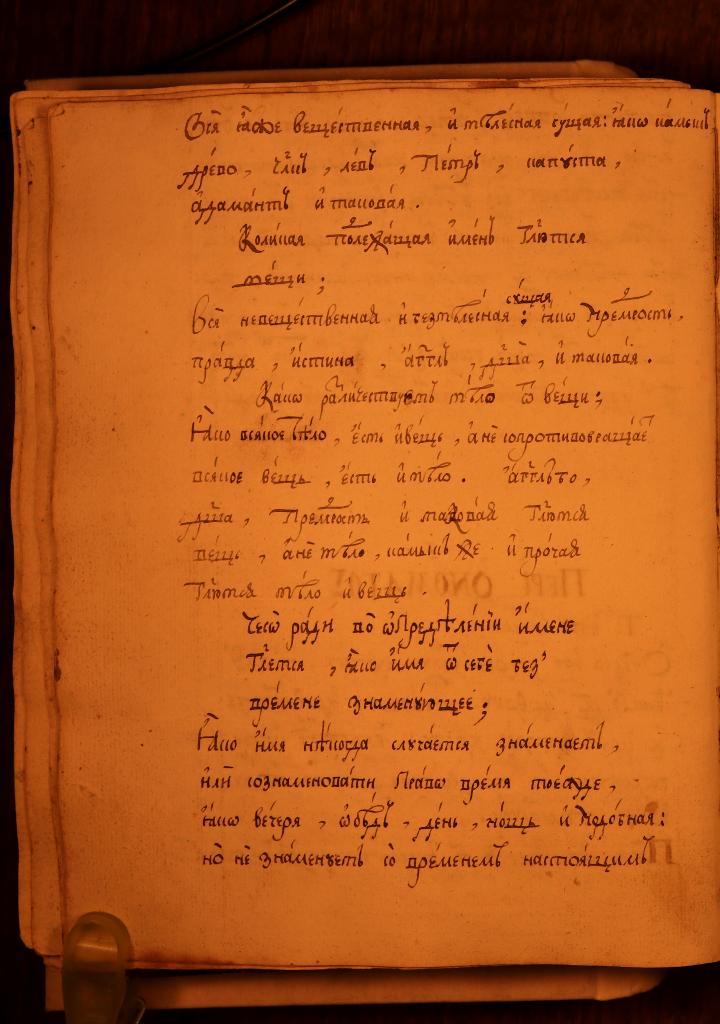 Всѧ̑ ꙗ҆̀же веще́ственнаѧ, и҆ тѣле́снаѧ сꙋ́щаѧ: ꙗ҆́кѡ ка́мыкъ
дре́во, чл҃къ, ле́въ, Пе́тръ, капꙋ́ста,
а҆дама́нтъ и҆ такова́ѧ.
Коли́каѧ подлежа́щаѧ и҆ме́нъ Гл҃ютсѧ
ве́щи;
Всѧ̑ невеще́ственнаѧ и҆ безтѣле́снаѧ сꙋ́щаѧ: ꙗ҆́кѡ Премⷣрость,
пра́вда, и҆́стина, а҆́гг҃лъ, дш҃а̀, и҆ такова́ѧ.
Ка́кѡ разли́чествꙋетъ тѣ́ло ѿ ве́щи;
Ꙗ҆́кѡ всѧ́кое тѣ́ло, є҆́сть и҆ ве́щь, а҆ не сопротивовраща́ет
всѧ́кое ве́щь, є҆́сть и҆ тѣ́ло. а҆́гг҃лъ бо,
дш҃а̀, Премⷣрость и҆ такова́ѧ Гл҃ютсѧ
ве́щь, а҆ не тѣ́ло, ка́мыкъ же и҆ про́чаѧ
Гл҃ютсѧ тѣ́ло и҆ ве́щь.
Чесѡ̀ ра́ди во ѡ҆предѣле́нїи и҆́мене
Гл҃етсѧ, ꙗ҆́кѡ и҆́мѧ ѿ себѐ без̾
вре́мене знаменꙋ́ющее;
Ꙗ҆́кѡ и҆́мѧ нѣ́когда слꙋча́етсѧ зна́менаетъ,
и҆лѝ сознаменова́ти Пра́вѡ вре́мѧ то́ежде,
ꙗ҆́кѡ ве́черѧ, ѡ҆бѣ́дъ, де́нь, но́щь и҆ Подо́бнаѧ:
но не зна́менꙋетъ со вре́менемъ настоѧ́щимъ